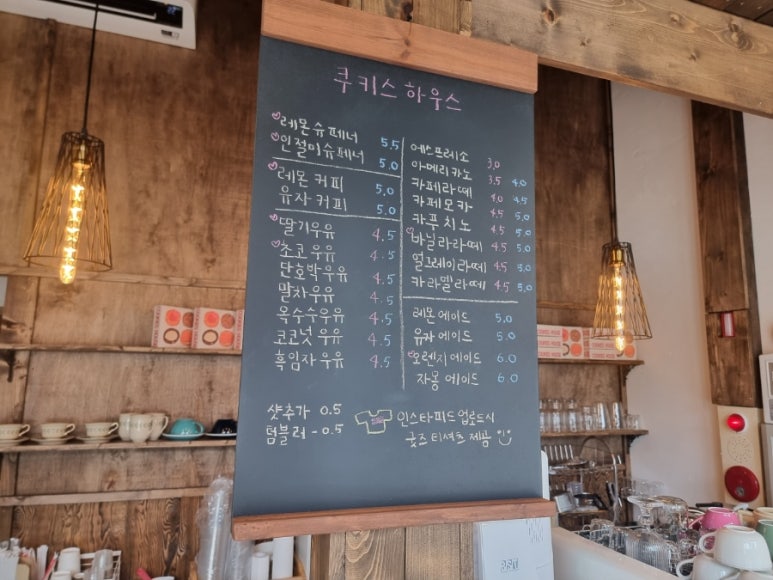 쿠키스 하우스
레몬슈페너 5.5
인절미슈페너 5.0
레몬 커피 5.0
유자 커피 5.0
딸기우유 4.5
초코우유 4.5
단호박우유 4.5
말차우유 4.5
옥수수우유 4.5
코코넛 우유 4.5
흑임자우유 4.5
샷추가 0.5
텀블러 - 0.5
에스프레소 3.0
아메리카노 3.5 4.0
카페라떼 4.0 4.5
카페모카 4.5 5.0
카푸치노 4.5 5.0
바닐라라떼 4.5 5.0
얼그레이라떼 4.5 5.0
카라멜라떼 4.5 5.0
레몬에이드 5.0
유자에이드 5.0
오렌지에이드 6.0
자몽에이드 6.0
인스타피드 업로드시
굿즈 티셔츠 제공